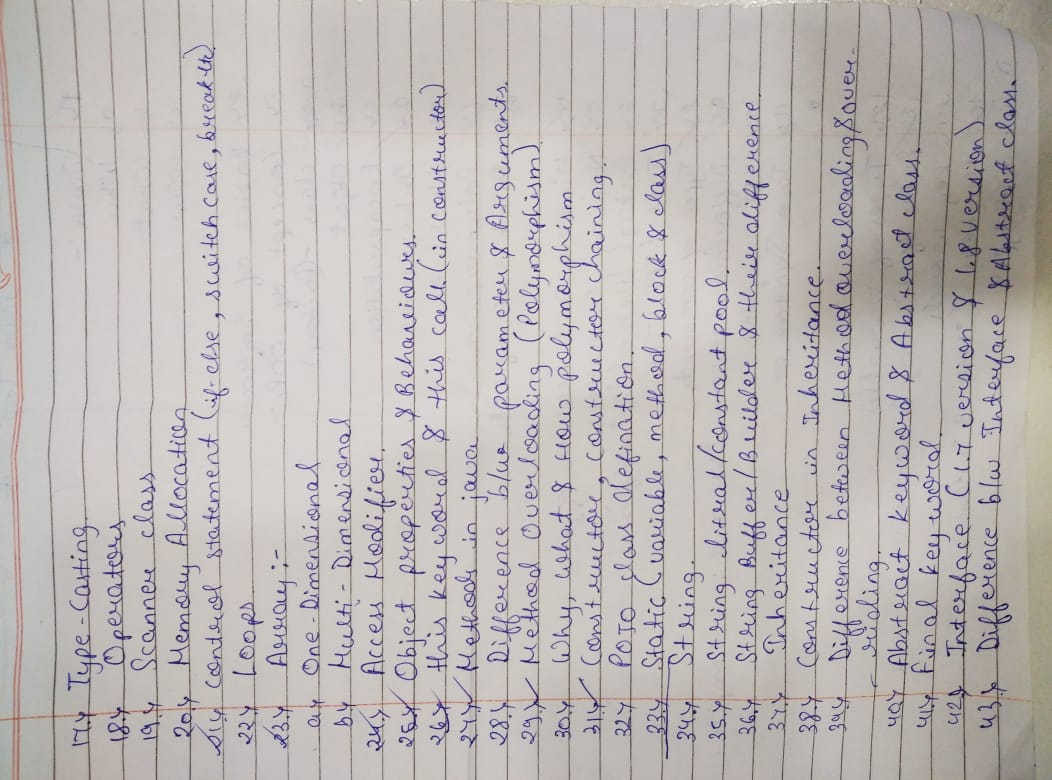 17.) Type-Casting
18.) Operators
19.) Scanner class
20.) Memory Allocation
21.) control statement (if-else, switch case, break etc)
22.) Loops
23.) Array :-
a) One-Dimensional
b) Multi-Dimensional
24.) Access Modifier.
25.) Object properties & Behaveiours.
26.) this keyword & this call (in constructor)
27.) Methods in java
28.) Difference b/w parameter & Arguments.
29.) Method Overloading (Polymorphism)
30.) Why, what & How polymorphism
31.) Constructor, Constructor chaining.
32.) POJO class defination.
33.) Static (variable, method, block & class)
34.) String.
35.) String litral/constant pool.
36.) String Buffer/Builder & their difference.
37.) Inheritance
38.) Constructor in Inheritance.
39.) Difference between Method overloading & over-
riding.
40.) Abstract keyword & Abstract class.
41.) Final keyword.
42.) Interface (1.7 version & 1.8 version)
43.) Difference b/w Interface & Abstract class.